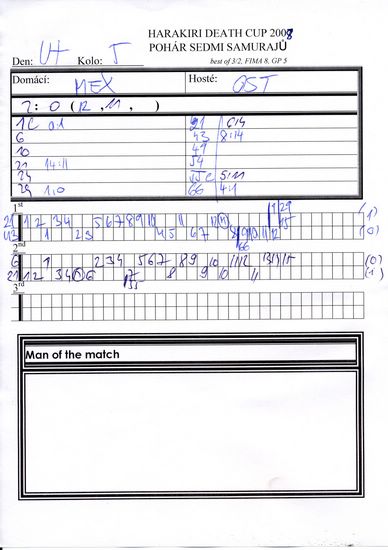 HARAKIRI DEATH CUP 2008
POHÁR SEDMI SAMURAJŮ
Den: Út Kolo: 5 best of 3/2, FIMA 8, GP 5
Domácí: MEX Hosté: GST
2:0 (12, 11, )
1C 0:1 21 6:4
6 43 8:14
10 49
21 14:11 54
24 55C 5:11
29 1:0 66 4:1
1st
21 1 2 3 4 5 6 7 8 9 10 11 12
43 1 2 3 4 5 6 7 8 9 10 11 12 (0)
2nd
6 1 2 3 4 5 6 7 8 9 10 11 12 (0)
21 1 2 3 4 6 8 9 10 11 (1)
3rd
Man of the match